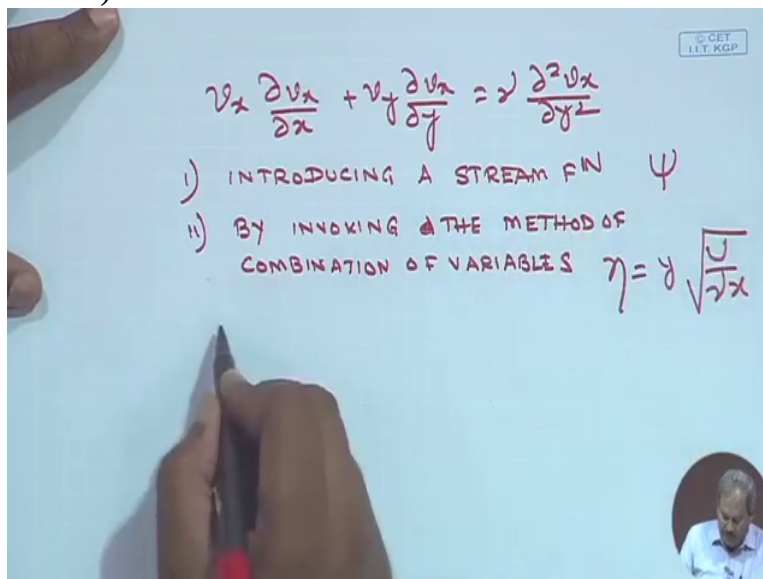 © CET
I.I.T. KGP
νx ∂νx/∂x + νy ∂νx/∂y = ν ∂²νx/∂y²
I) INTRODUCING A STREAM FN ψ
II) BY INVOKING THE METHOD OF
COMBINATION OF VARIABLES η = y √(U/νx)